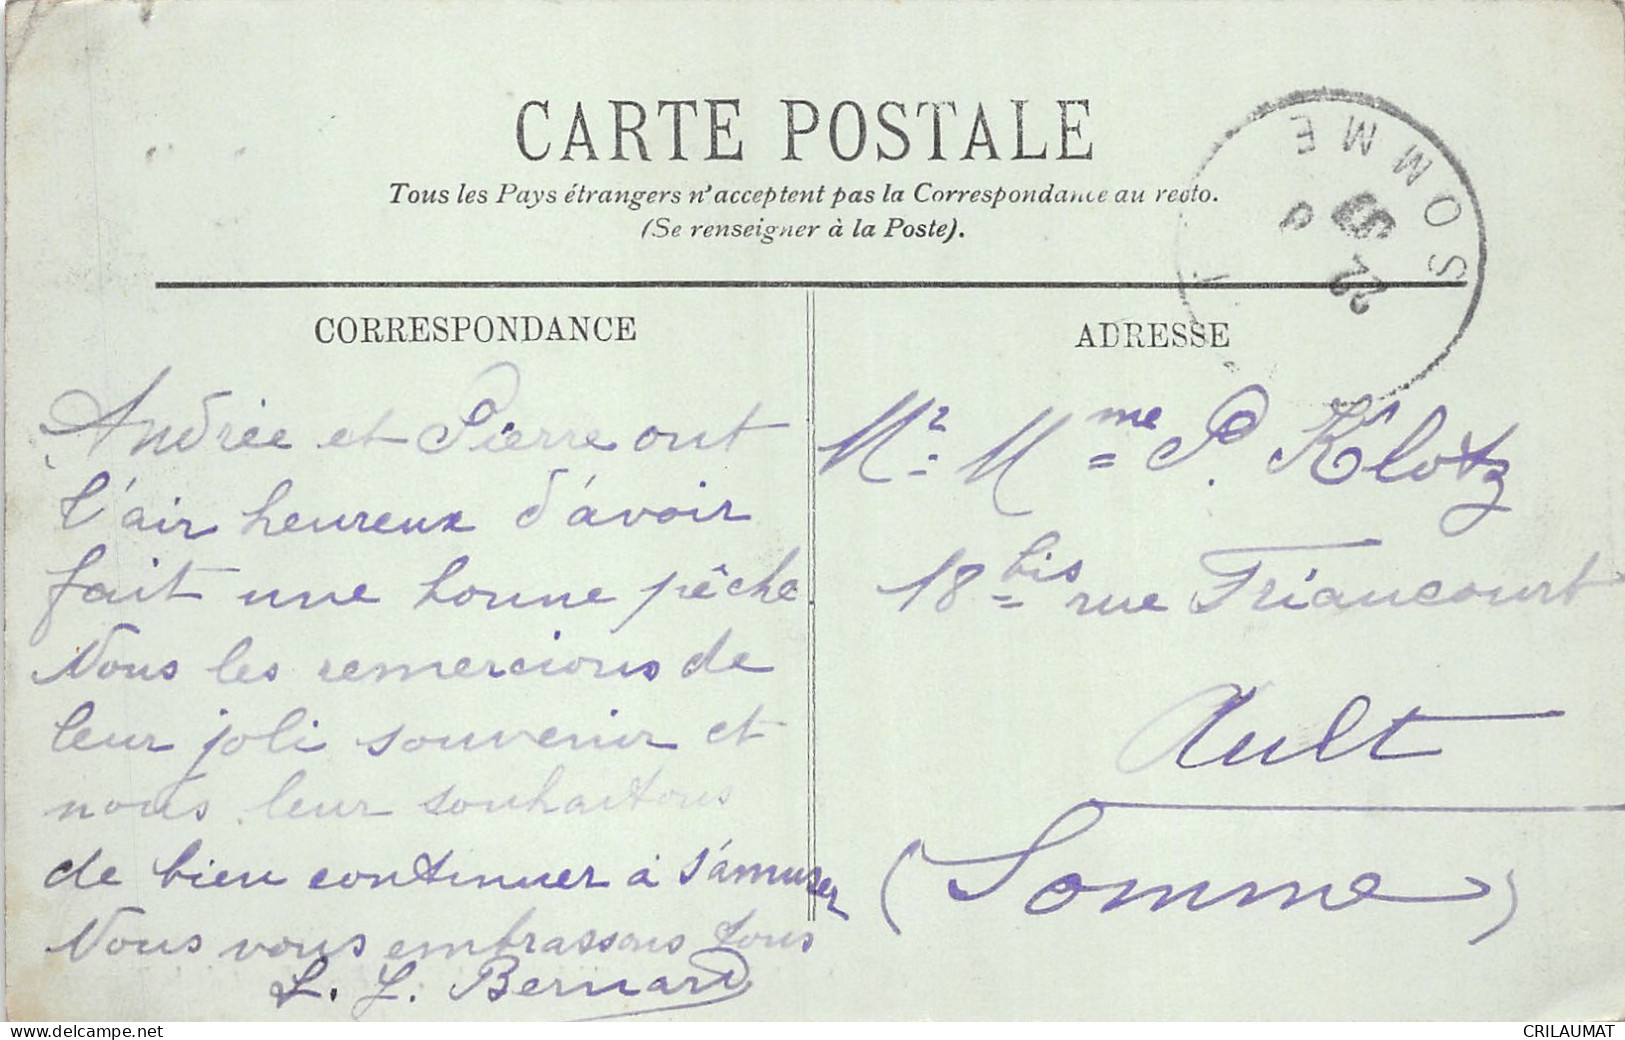 CARTE POSTALE
Tous les Pays étrangers n'acceptent pas la Correspondance au recto.
(Se renseigner à la Poste).
SOMME
CORRESPONDANCE
Andrée et Pierre ont
l'air heureux d'avoir
fait une bonne pêche
Nous les remercions de
leur joli souvenir et
nous leur souhaitons
de bien continuer à s'amuser
Nous vous embrassons tous
L. L. Bernard
ADRESSE
Mr. Mme P. Klotz
18 bis rue Friancourt
Ault
(Somme)
www.delcampe.net
CRILAUMAT